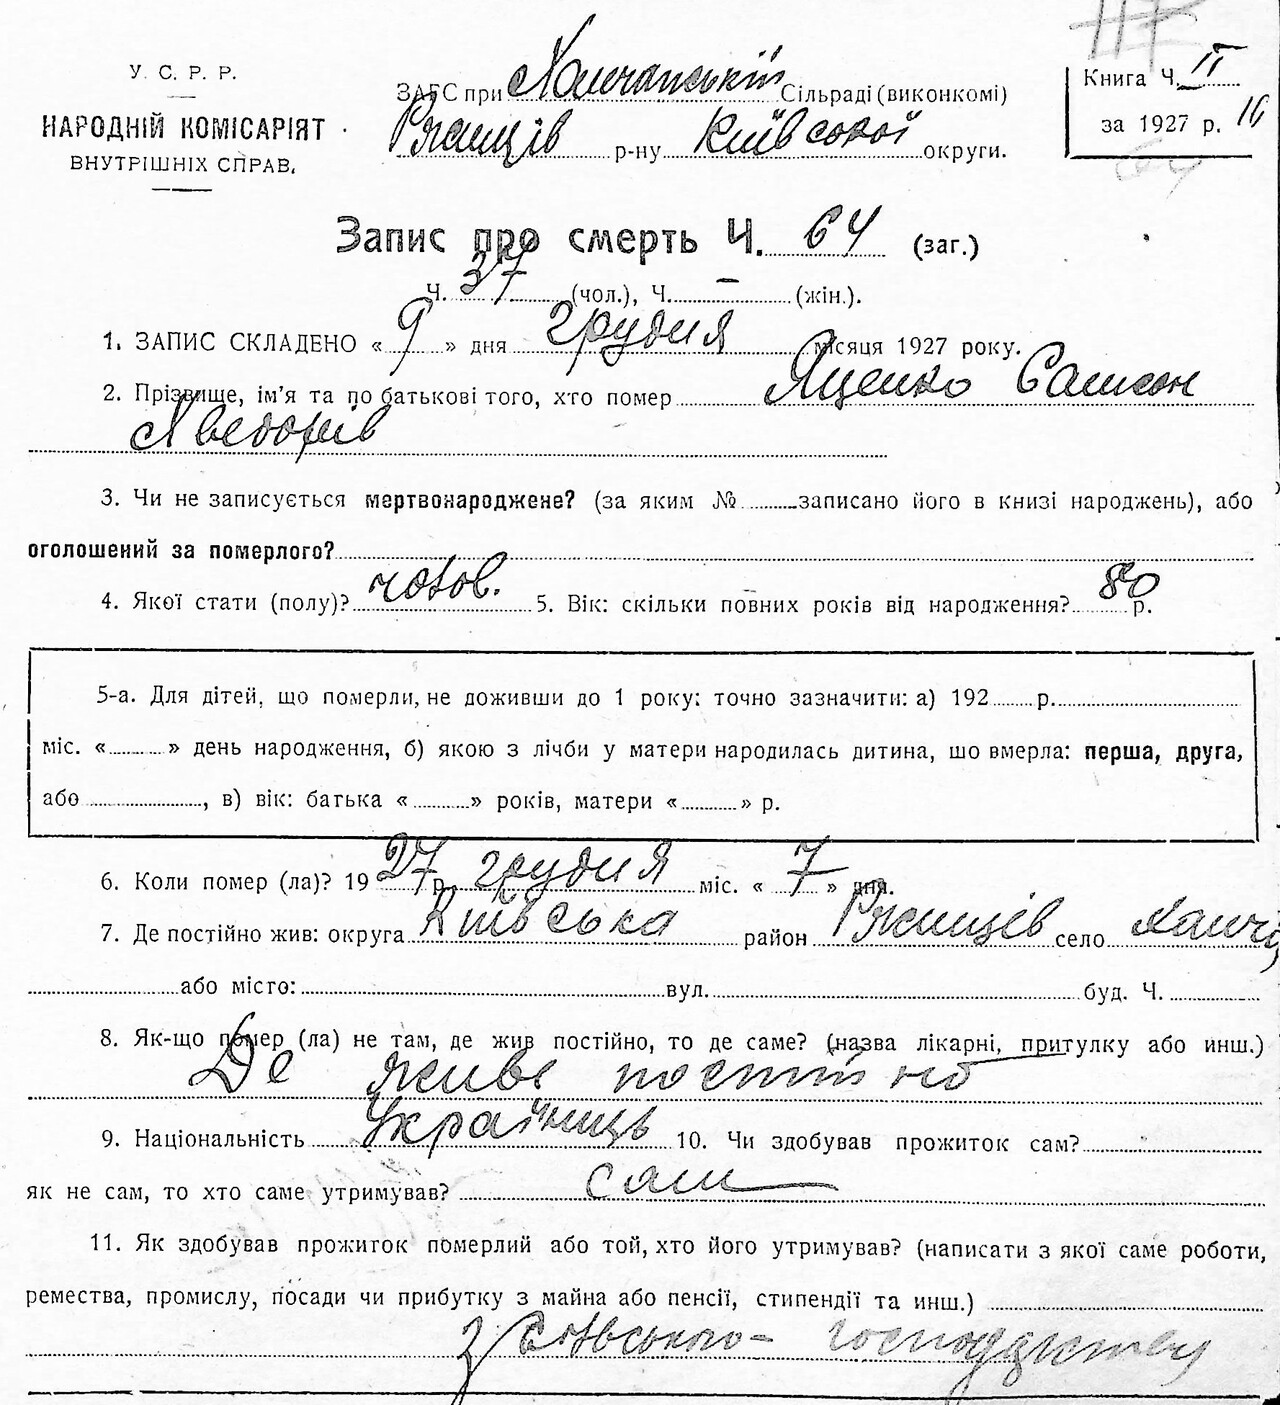 У. С. Р. Р.
НАРОДНІЙ КОМІСАРІЯТ
ВНУТРІШНІХ СПРАВ.
ЗАГС при Сільраді (виконкомі)
Ржищів р-ну Київської округи.
Книга Ч. II
за 1927 р.
Запис про смерть Ч. 64 (заг.)
Ч. 37 (чол.), Ч. – (жін.).
1. ЗАПИС СКЛАДЕНО « 9 » дня грудня місяця 1927 року.
2. Прізвище, ім'я та по батькові того, хто помер Яценко Самсон
Хведорів
3. Чи не записується мертвонароджене? (за яким № записано його в книзі народжень), або
оголошений за померлого?
4. Якої стати (полу)? чолов. 5. Вік: скільки повних років від народження? 80 р.
5-а. Для дітей, що померли, не доживши до 1 року: точно зазначити: а) 192 р.
міс. « » день народження, б) якою з лічби у матери народилась дитина, що вмерла: перша, друга,
або , в) вік: батька « » років, матери « » р.
6. Коли помер (ла)? 1927 р. грудня міс. « 7 » дня.
7. Де постійно жив: округа Київська район Ржищів село
або місто: вул. буд. Ч.
8. Як-що помер (ла) не там, де жив постійно, то де саме? (назва лікарні, притулку або инш.)
Де живе постійно
9. Національність Українець 10. Чи здобував прожиток сам?
як не сам, то хто саме утримував? сам
11. Як здобував прожиток померлий або той, хто його утримував? (написати з якої саме роботи,
ремества, промислу, посади чи прибутку з майна або пенсії, стипендії та инш.)
з сільського господарства